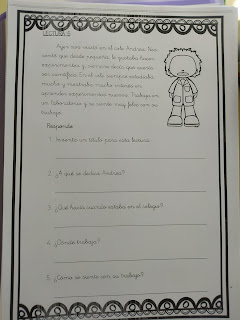 LECTURA 9
Ayer nos visitó en el cole Andrea. Nos
contó que desde pequeña le gustaba hacer
experimentos y siempre decía que quería
ser científica. En el cole siempre estudiaba
mucho y mostraba mucho interés en
aprender experimentos nuevos. Trabaja en
un laboratorio y se siente muy feliz con su
trabajo.
Responde
1. Inventa un título para esta lectura.
2. ¿A qué se dedica Andrea?
3. ¿Qué hacía cuando estaba en el colegio?
4. ¿Dónde trabaja?
5. ¿Cómo se siente con su trabajo?